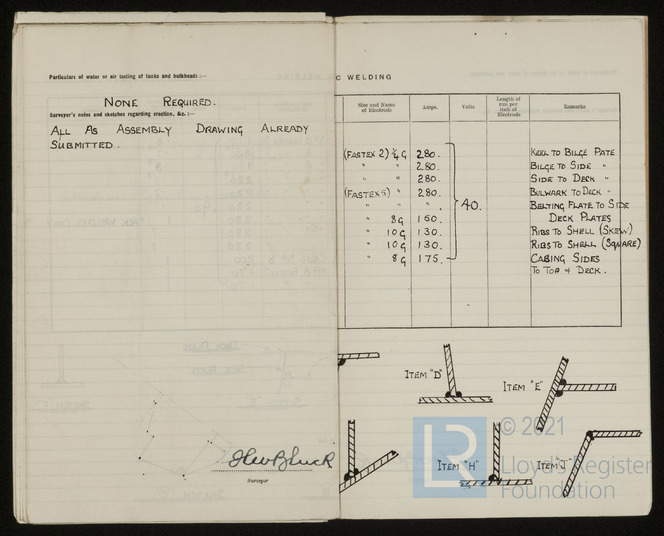 Particulars of water or air testing of tanks and bulkheads :—
NONE REQUIRED.
Surveyor's notes and sketches regarding erection, &c. :—
ALL AS ASSEMBLY DRAWING ALREADY
SUBMITTED.
Surveyor
C WELDING
Size and Name of Electrode Amps. Volts Length of run per inch of Electrode Remarks
(FASTEX 2) 1/4 G 280. KEEL TO BILGE PATE
" " 280. BILGE TO SIDE "
" " 280. SIDE TO DECK "
(FASTEX 5) " 280. BULWARK TO DECK "
" " " . 40. BELTING PLATE TO SIDE
" 8G 160. DECK PLATES
" 10G 130. RIBS TO SHELL (SKEW)
" 10G 130. RIBS TO SHELL (SQUARE)
" 8G 175. CABING SIDES
TO TOP & DECK.
ITEM "D"
ITEM "E"
ITEM "H"
ITEM "J"
LR
© 2021
Lloyd's Register
Foundation